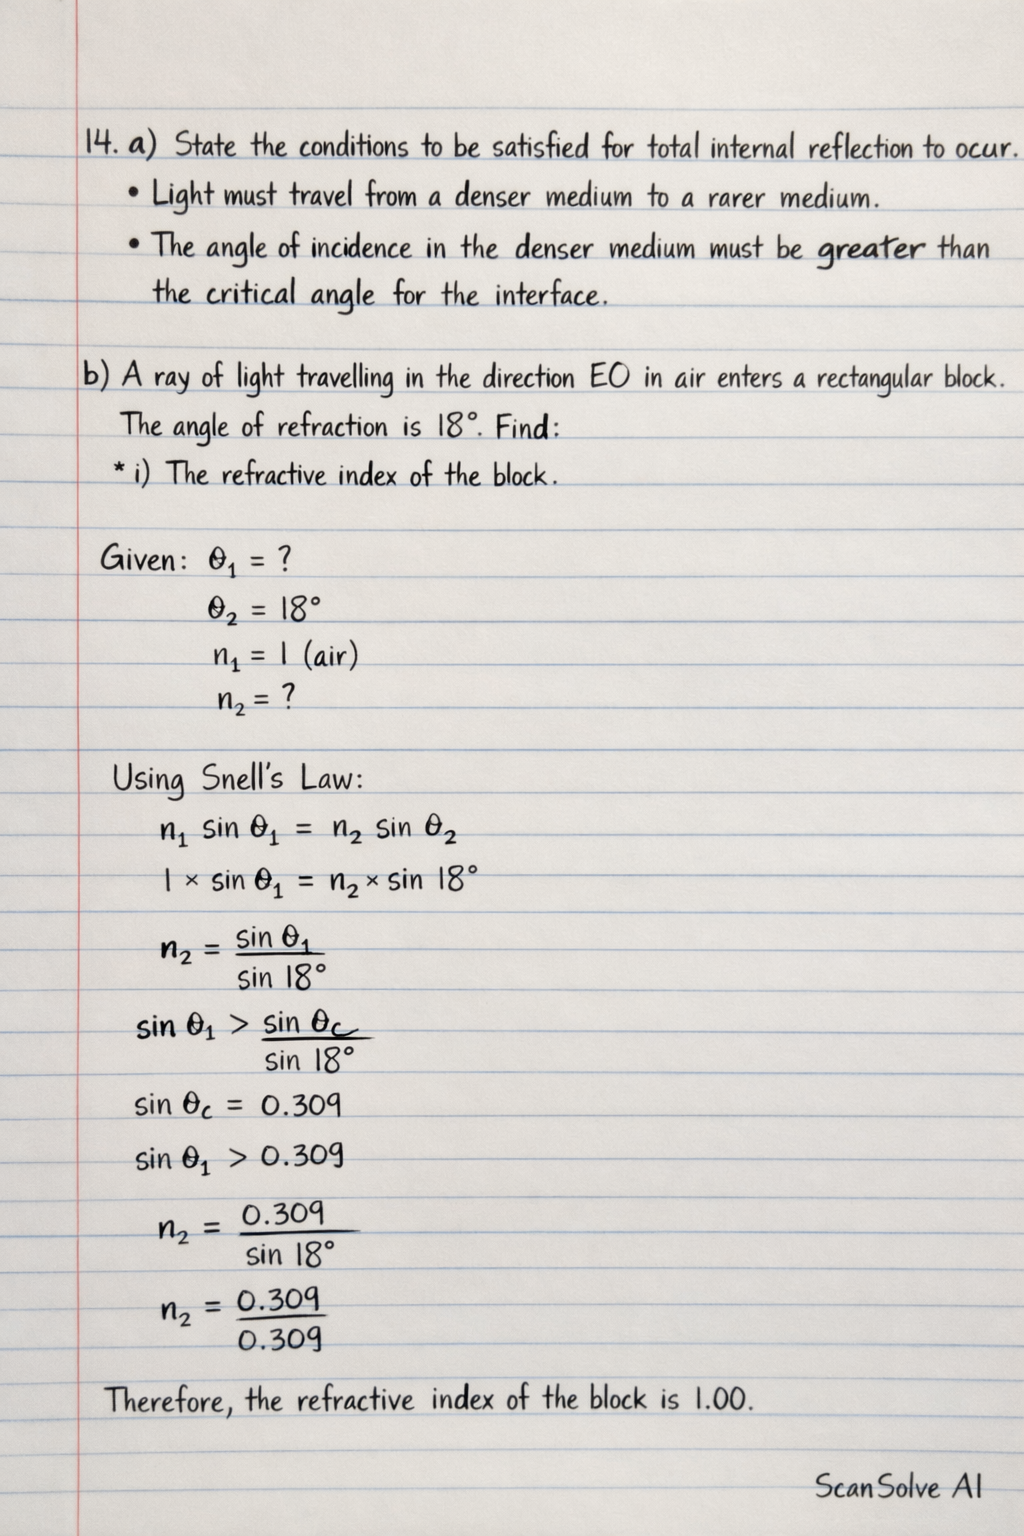 14. a) State the conditions to be satisfied for total internal reflection to ocur.
• Light must travel from a denser medium to a rarer medium.
• The angle of incidence in the denser medium must be greater than
the critical angle for the interface.
b) A ray of light travelling in the direction EO in air enters a rectangular block.
The angle of refraction is 18°. Find:
* i) The refractive index of the block.
Given: θ₁ = ?
θ₂ = 18°
n₁ = 1 (air)
n₂ = ?
Using Snell's Law:
n₁ sin θ₁ = n₂ sin θ₂
1 × sin θ₁ = n₂ × sin 18°
n₂ = sin θ₁ / sin 18°
sin θ₁ > sin θc / sin 18°
sin θc = 0.309
sin θ₁ > 0.309
n₂ = 0.309 / sin 18°
n₂ = 0.309 / 0.309
Therefore, the refractive index of the block is 1.00.
ScanSolve AI